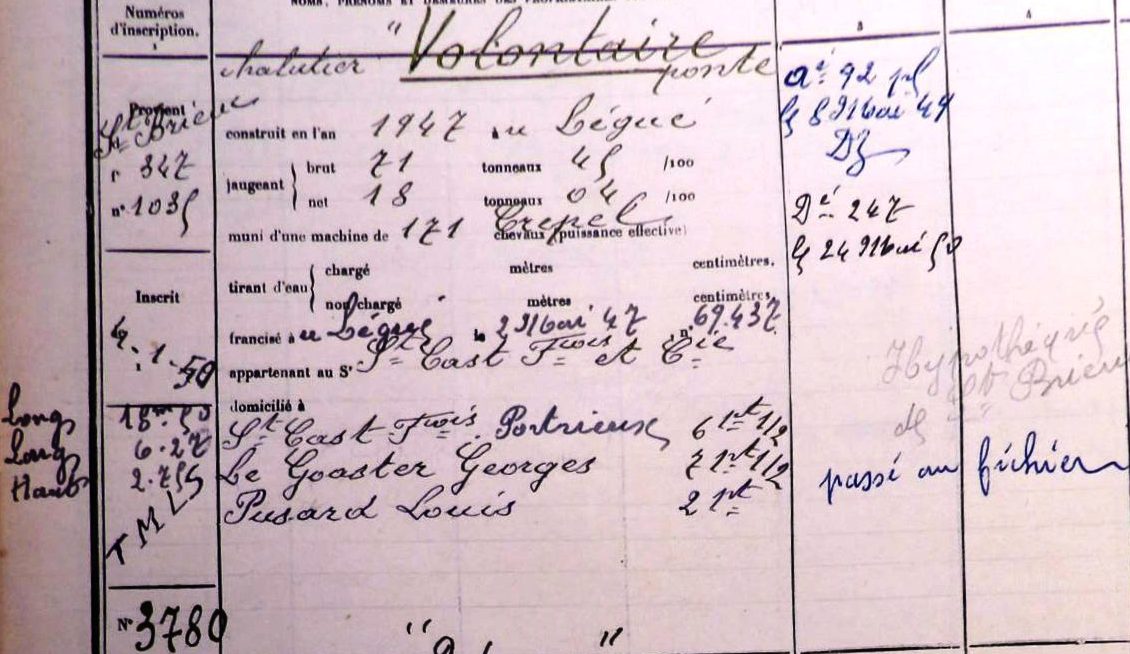 Numéros
d'inscription.
1
3
4
"Volontaire
chalutier ponté
Provient
St Brieuc
fº 347
nº 1035
construit en l'an 1947 à u Légué
jaugeant
brut 71 tonneaux 45 /100
net 18 tonneaux 04 /100
muni d'une machine de 171 chevaux (puissance effective)
Crepel
tirant d'eau
chargé mètres centimètres.
non chargé mètres centimètres.
francisé à u Légué le 2 Mai 47 nº 69.437
appartenant au Sr St Cast Fois et Cie
domicilié à
St Cast Fois Portrieux 61pt 1/2
Le Goaster Georges 71pt 1/2
Pusard Louis 21pt
Inscrit
4.1.50
Long 18m 50
Larg 6.27
Haut 2.755
TMLS
Dé 92
8 Mai 49
Dé 247
24 Mai 50
Hypothéqué
de St Brieuc
passé au fichier
Nº 3780
"
"